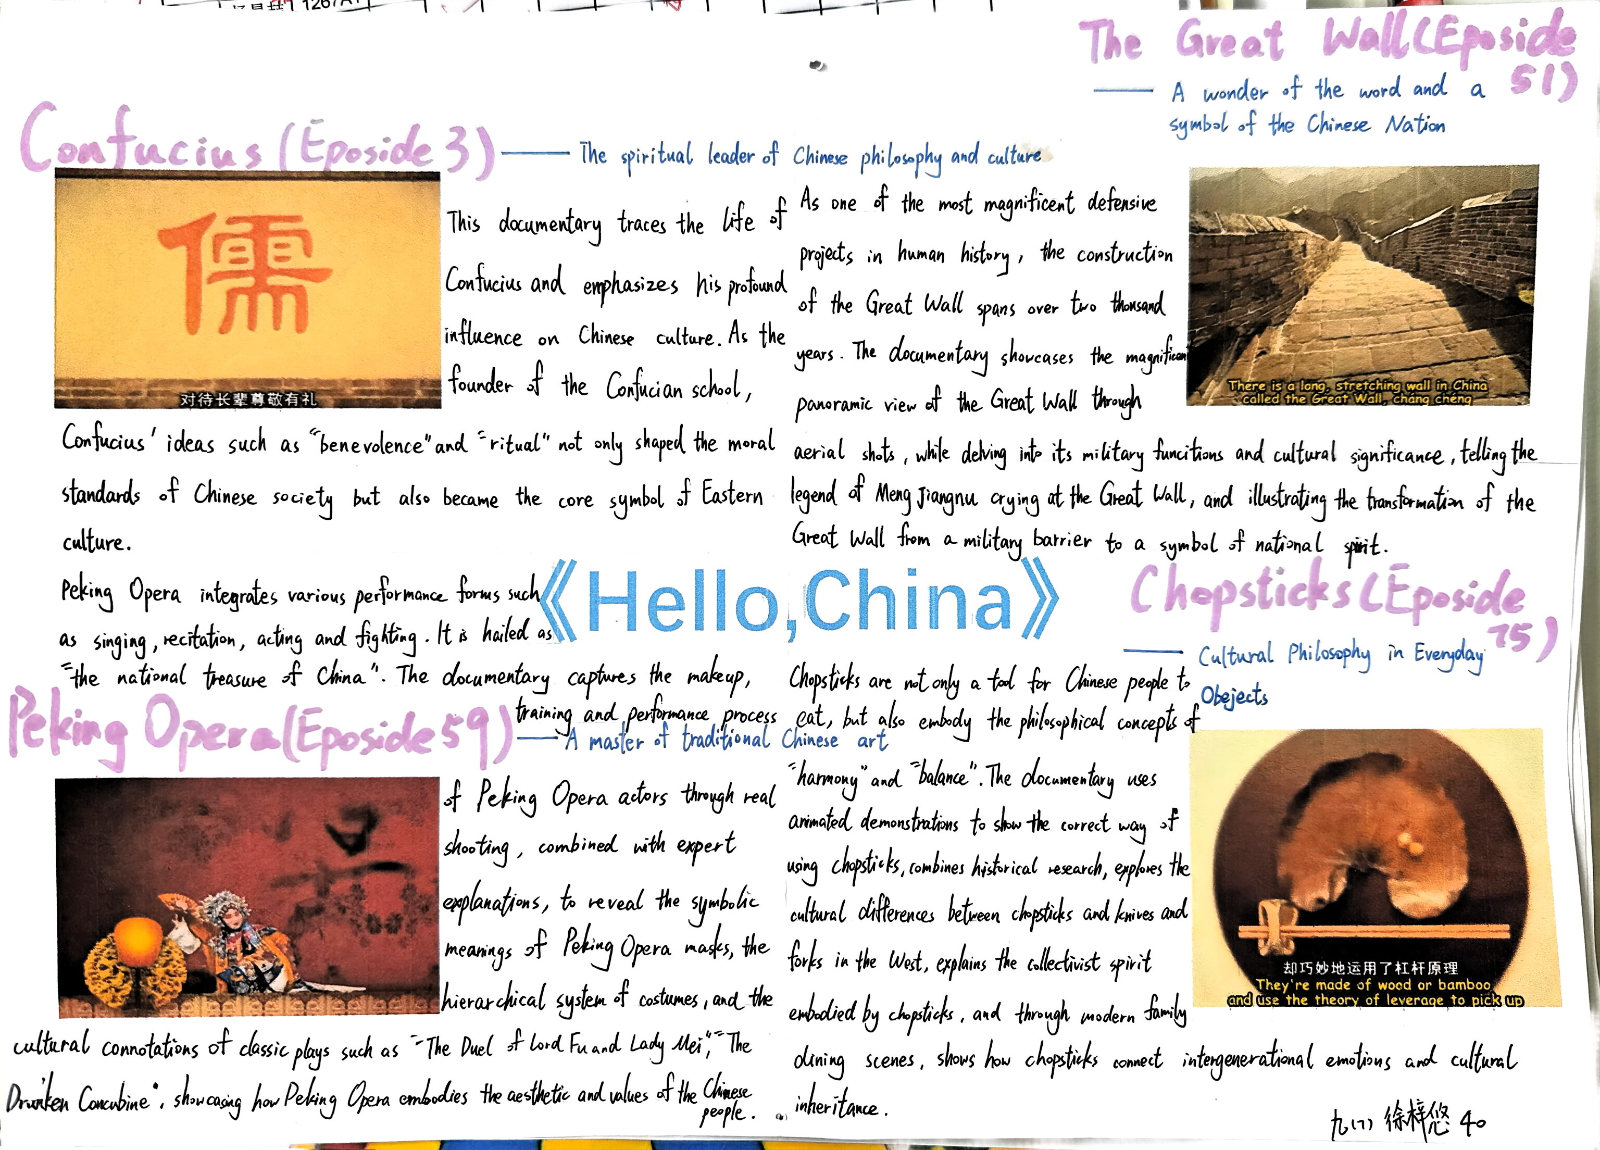 The Great Wall(Eposide 51)
—— A wonder of the word and a
symbol of the Chinese Nation
Confucius(Eposide 3)—— The spiritual leader of Chinese philosophy and culture
儒
对待长辈尊敬有礼
This documentary traces the life of
Confucius and emphasizes his profound
influence on Chinese culture. As the
founder of the Confucian school,
Confucius' ideas such as "benevolence" and "ritual" not only shaped the moral
standards of Chinese society but also became the core symbol of Eastern
culture.
As one of the most magnificent defensive
projects in human history, the construction
of the Great Wall spans over two thousand
years. The documentary showcases the magnificent
panoramic view of the Great Wall through
aerial shots, while delving into its military funcitions and cultural significance, telling the
legend of Meng Jiangnu crying at the Great Wall, and illustrating the transformation of the
Great Wall from a military barrier to a symbol of national spirit.
There is a long, stretching wall in China
called the Great Wall, cháng chéng
《Hello,China》
Peking Opera integrates various performance forms such
as singing, recitation, acting and fighting. It is hailed as
"the national treasure of China". The documentary captures the makeup,
training and performance process
Peking Opera(Eposide 59)—— A master of traditional Chinese art
of Peking Opera actors through real
shooting, combined with expert
explanations, to reveal the symbolic
meanings of Peking Opera masks, the
hierarchical system of costumes, and the
cultural connotations of classic plays such as "The Duel of Lord Fu and Lady Mei", "The
Drunken Concubine", showcasing how Peking Opera embodies the aesthetic and values of the Chinese
people.
Chopsticks(Eposide 75)
—— Cultural Philosophy in Everyday
Obejects
Chopsticks are not only a tool for Chinese people to
eat, but also embody the philosophical concepts of
"harmony" and "balance". The documentary uses
animated demonstrations to show the correct way of
using chopsticks, combines historical research, explores the
cultural differences between chopsticks and knives and
forks in the West, explains the collectivist spirit
embodied by chopsticks, and through modern family
dining scenes, shows how chopsticks connect intergenerational emotions and cultural
inheritance.
却巧妙地运用了杠杆原理
They're made of wood or bamboo
and use the theory of leverage to pick up
九(7) 徐梓悠 40